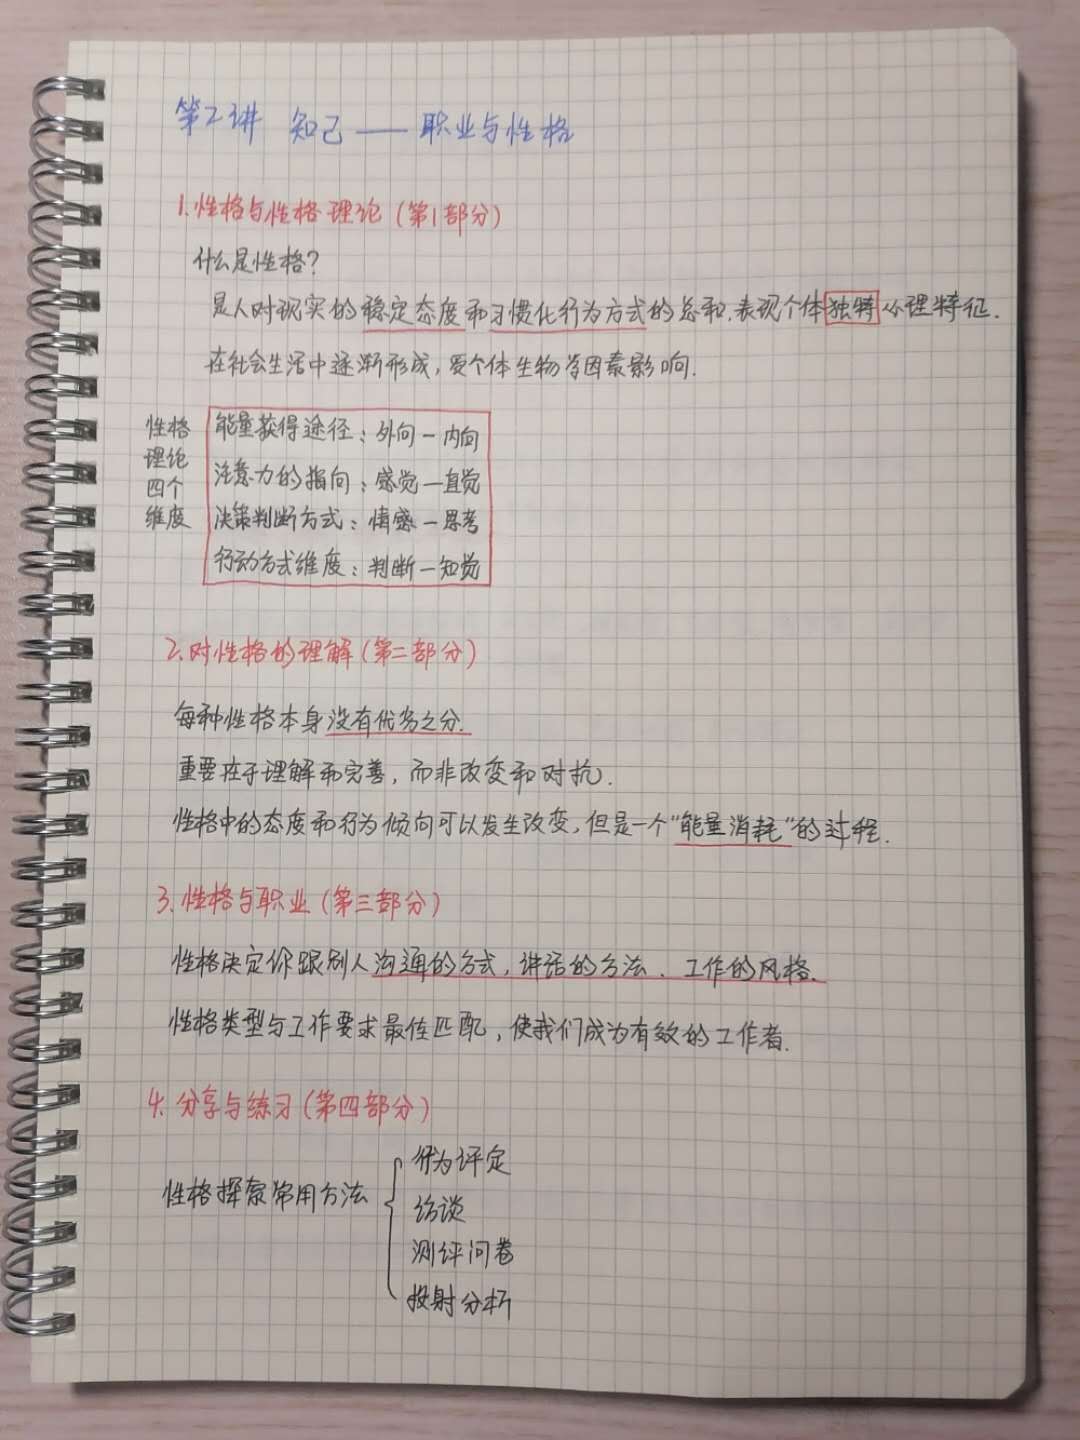 第2讲 知己——职业与性格
1.性格与性格理论(第1部分)
什么是性格?
是人对现实的稳定态度和习惯化行为方式的总和.表现个体独特心理特征.
在社会生活中逐渐形成,受个体生物学因素影响.
性格理论四个维度
能量获得途径:外向—内向
注意力的指向:感觉—直觉
决策判断方式:情感—思考
行动方式维度:判断—知觉
2.对性格的理解(第二部分)
每种性格本身没有优劣之分.
重要在于理解和完善,而非改变和对抗.
性格中的态度和行为倾向可以发生改变,但是一个"能量消耗"的过程.
3.性格与职业(第三部分)
性格决定你跟别人沟通的方式,讲话的方法、工作的风格.
性格类型与工作要求最佳匹配,使我们成为有效的工作者.
4.分享与练习(第四部分)
性格探索常用方法
行为评定
访谈
测评问卷
投射分析